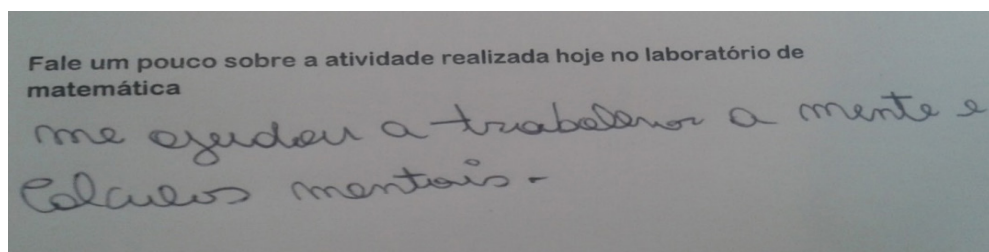 Fale um pouco sobre a atividade realizada hoje no laboratório de
matemática
me ajudou a trabalhar a mente e
Calculos mentais.